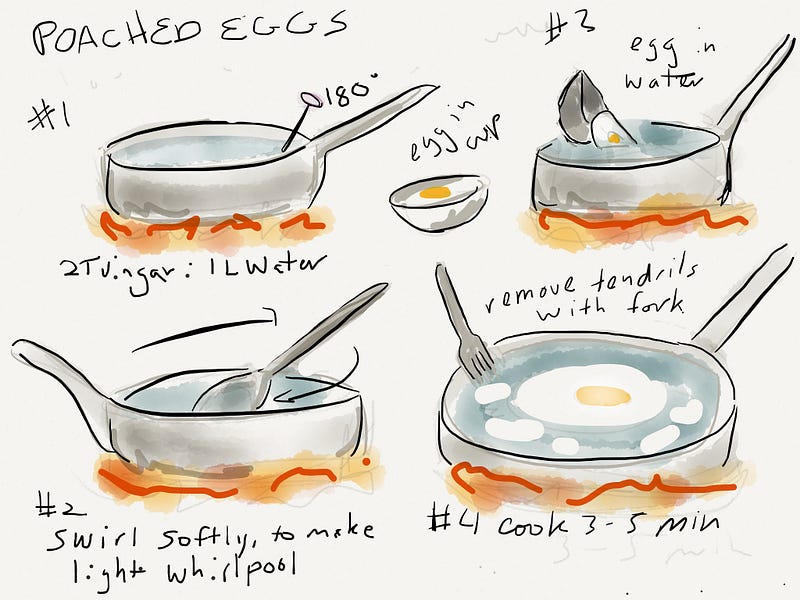 POACHED EGGS
#1
180°
2T vingar: 1L Water
#2
swirl softly, to make
light whirlpool
egg in
cup
#3
egg in
water
remove tendrils
with fork
#4 cook 3-5 min
3-5 min